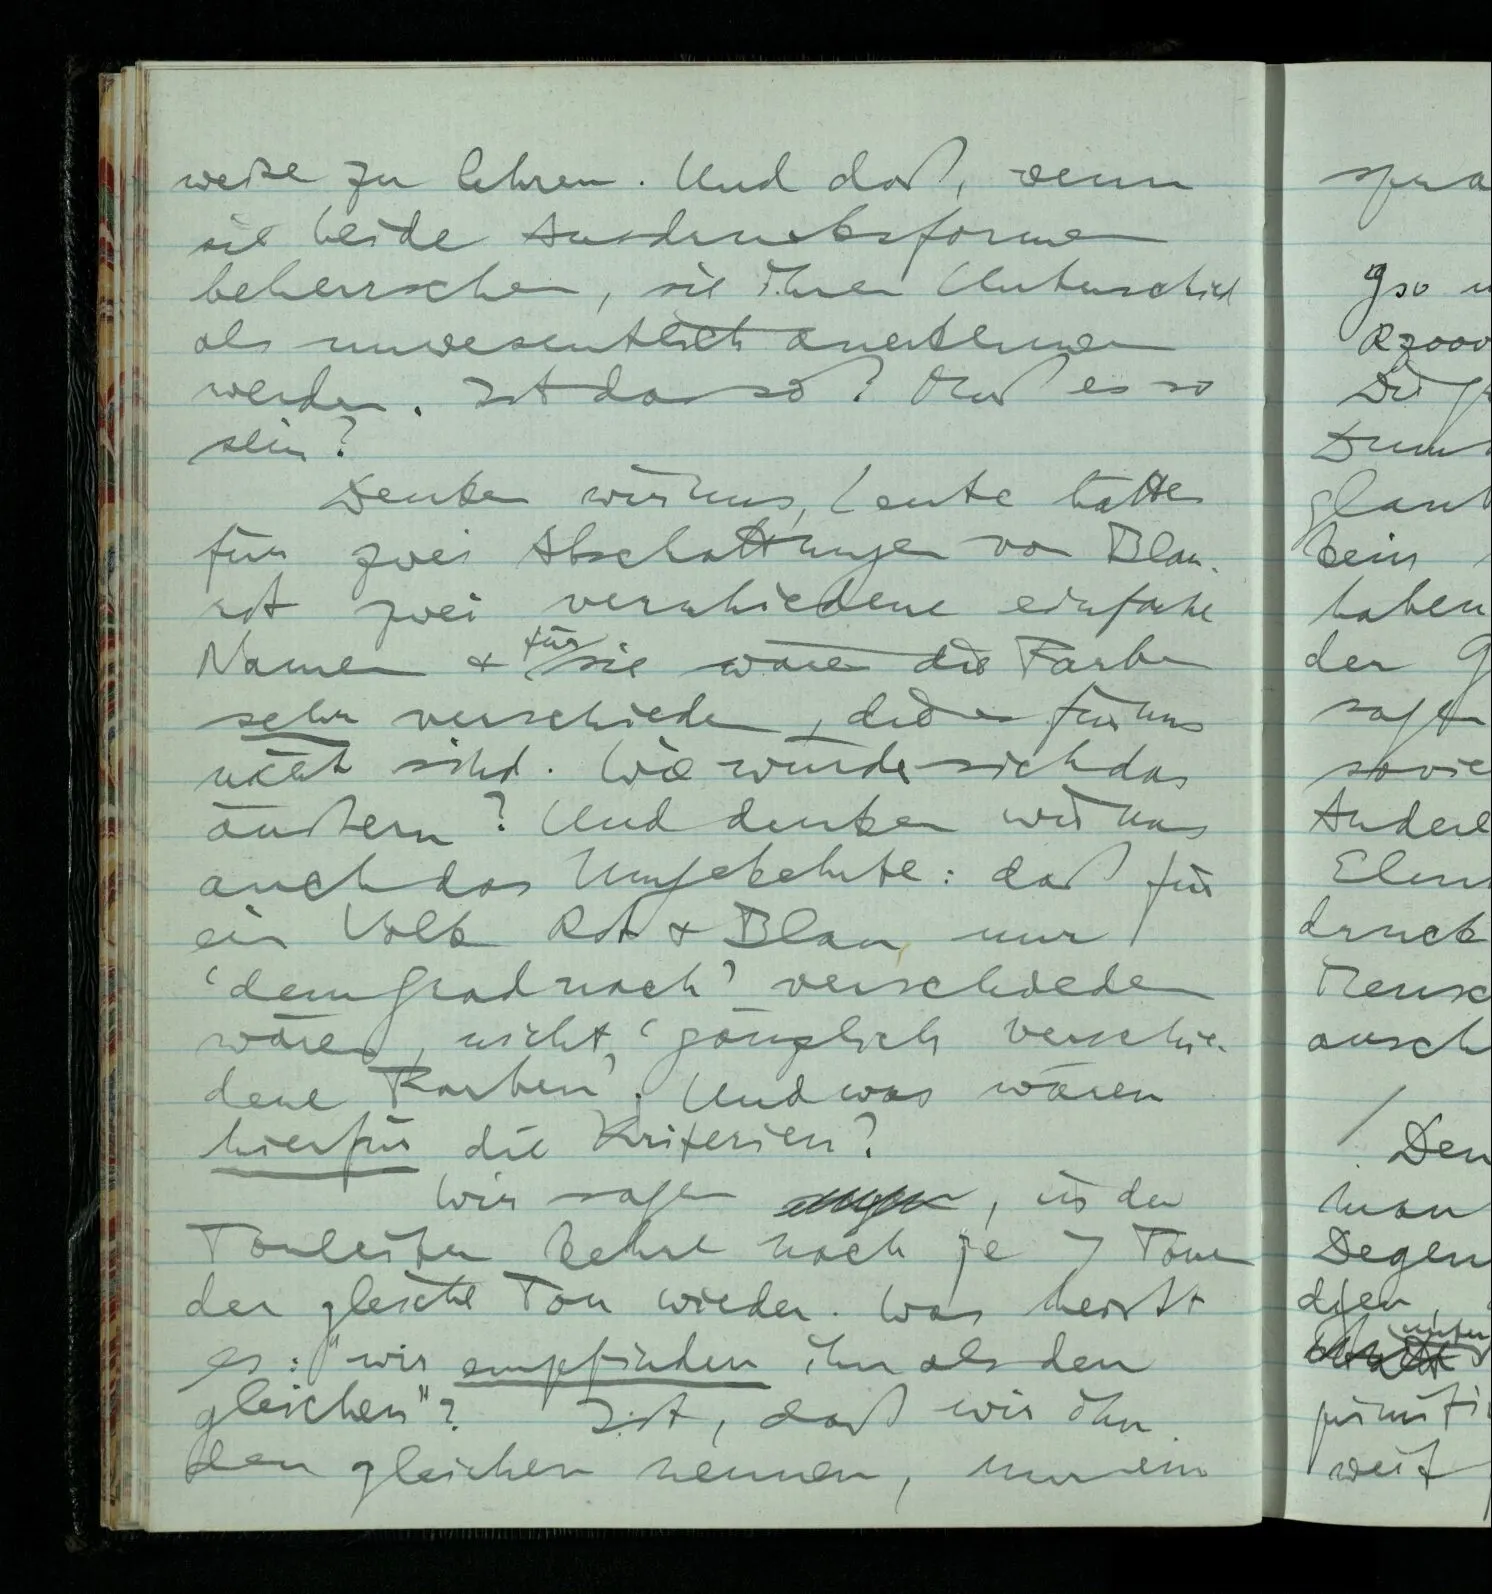 weise zu lehren. Und daß, wenn
sie beide Ausdrucksformen
beherrschen, sie ihren Unterschied
als unwesentlich anerkennen
werden. Ist das so? Muß es so
sein?
Denken wir uns, Leute hätten
für zwei Abschattungen von Blau-
rot zwei verschiedene einfache
Namen & für sie wären die Farben
sehr verschieden, die es für uns
nicht sind. Wie würde sich das
äußern? Und denken wir uns
auch das Umgekehrte: daß für
ein Volk Rot & Blau nur
'dem Grad nach' verschieden
wären, nicht 'gänzlich verschie-
dene Farben'. Und was wären
hierfür die Kriterien?
Wir sagen, in der
Tonleiter kehre nach je 7 Tönen
der gleiche Ton wieder. Was heißt
es: "wir empfinden ihn als den
gleichen"? Ist, daß wir ihn
den gleichen nennen, nur ein
spra
Dru
glau
kein
haben
der
sagen
sovie
Andere
druck
Mensc
ansch
/ Den
man
Degen
primiti
weit